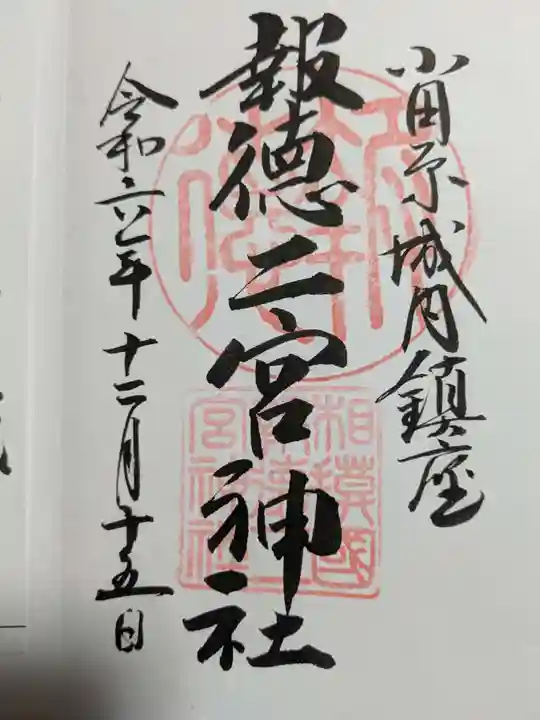 小田原城内鎮座
報徳二宮神社
令和六年十二月十五日
相模國
宮神社